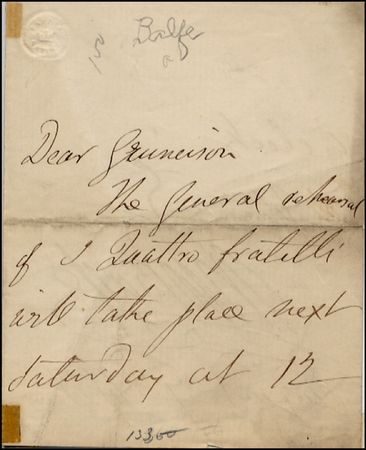 Balfe
Dear Gruneison
The General rehearsal
of I Quattro fratelli
will take place next
Saturday at 12
133,00